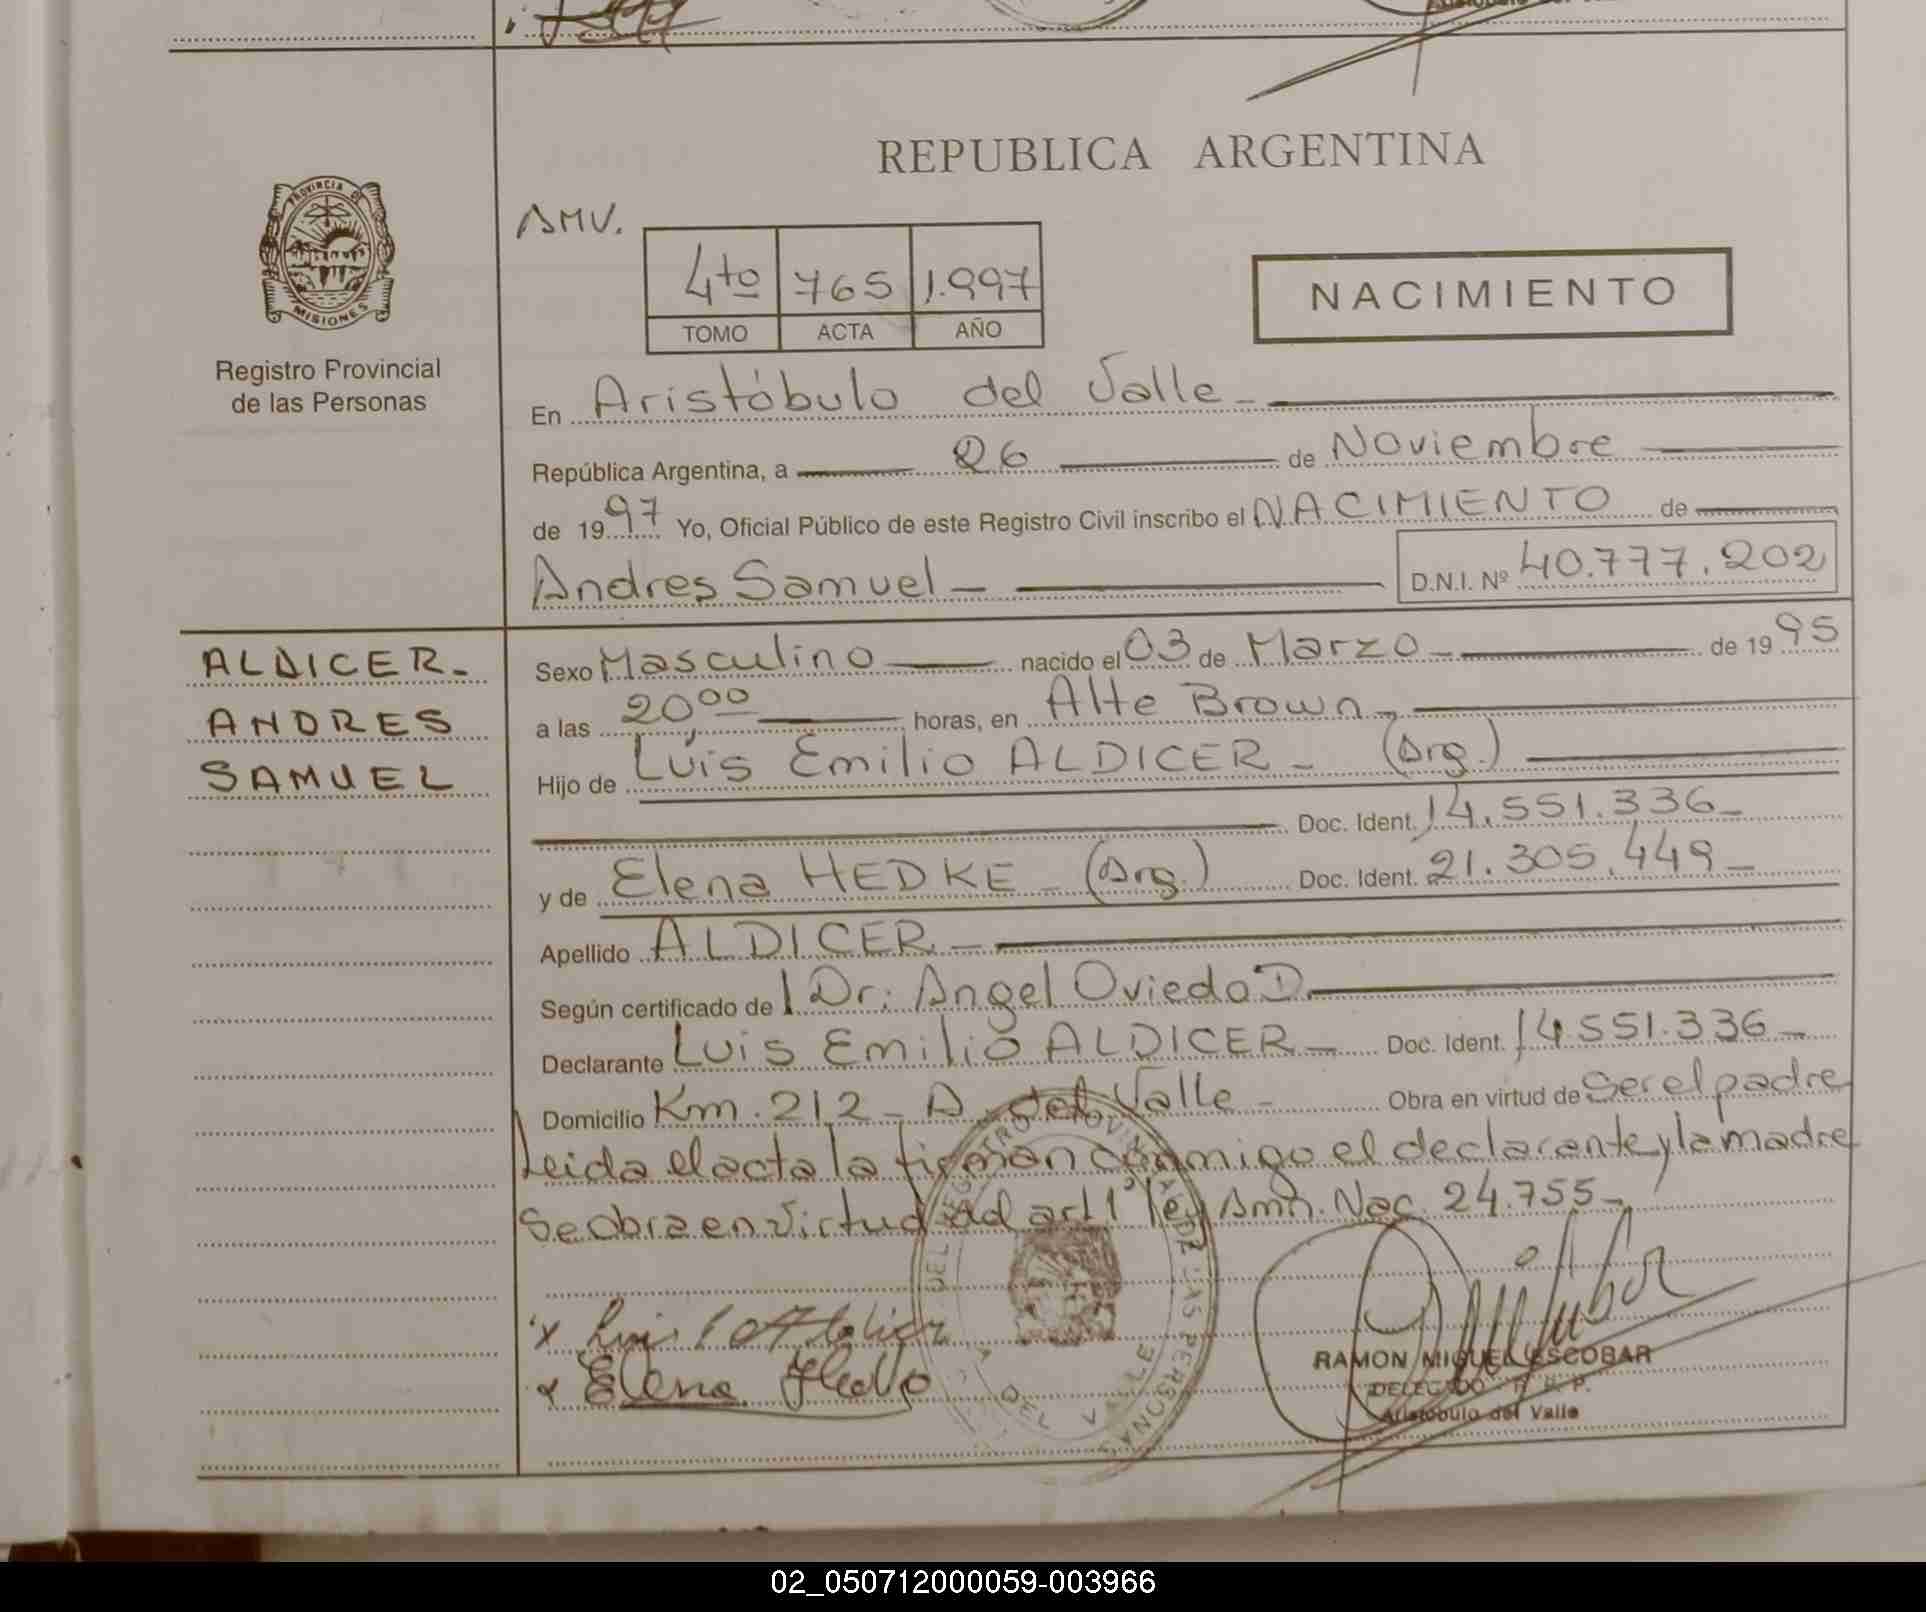 REPUBLICA ARGENTINA
PROVINCIA DE
MISIONES
Registro Provincial
de las Personas
AMV.
4to 765 1.997
TOMO ACTA AÑO
NACIMIENTO
En Aristóbulo del Valle -
República Argentina, a 26 de Noviembre
de 1997 Yo, Oficial Público de este Registro Civil inscribo el NACIMIENTO de
Andres Samuel - D.N.I. Nº 40.777.202
ALDICER.-
ANDRES
SAMUEL
Sexo Masculino nacido el 03 de Marzo - de 1995
a las 20 00 horas, en Alte Brown -
Hijo de Luis Emilio ALDICER - (Arg.)
Doc. Ident. 14.551.336 -
y de Elena HEDKE - (Arg.) Doc. Ident. 21.305.449 -
Apellido ALDICER -
Según certificado de Dr: Angel Oviedo D.
Declarante Luis Emilio ALDICER - Doc. Ident. 14.551.336 -
Domicilio Km. 212 - A. del Valle - Obra en virtud de ser el padre
Leida el acta la firman conmigo el declarante y la madre
Se obra en virtud del art 1º ley Amn. Nac. 24.755 -
x Luis
x Elena
RAMON MIGUEL ESCOBAR
DELEGADO R. P. P.
Aristobulo del Valle
02_050712000059-003966